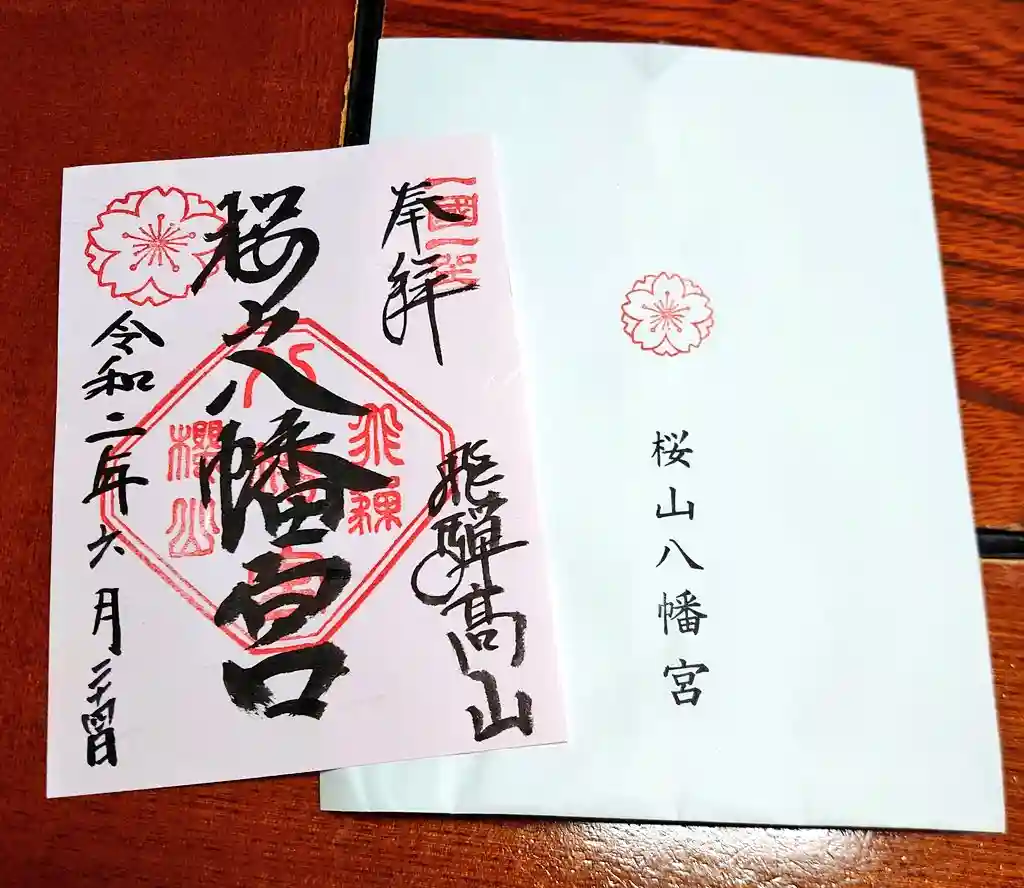 奉拝
一國一社
飛騨高山
桜山八幡宮
飛騨
櫻山
令和二年六月二十四日
桜山八幡宮